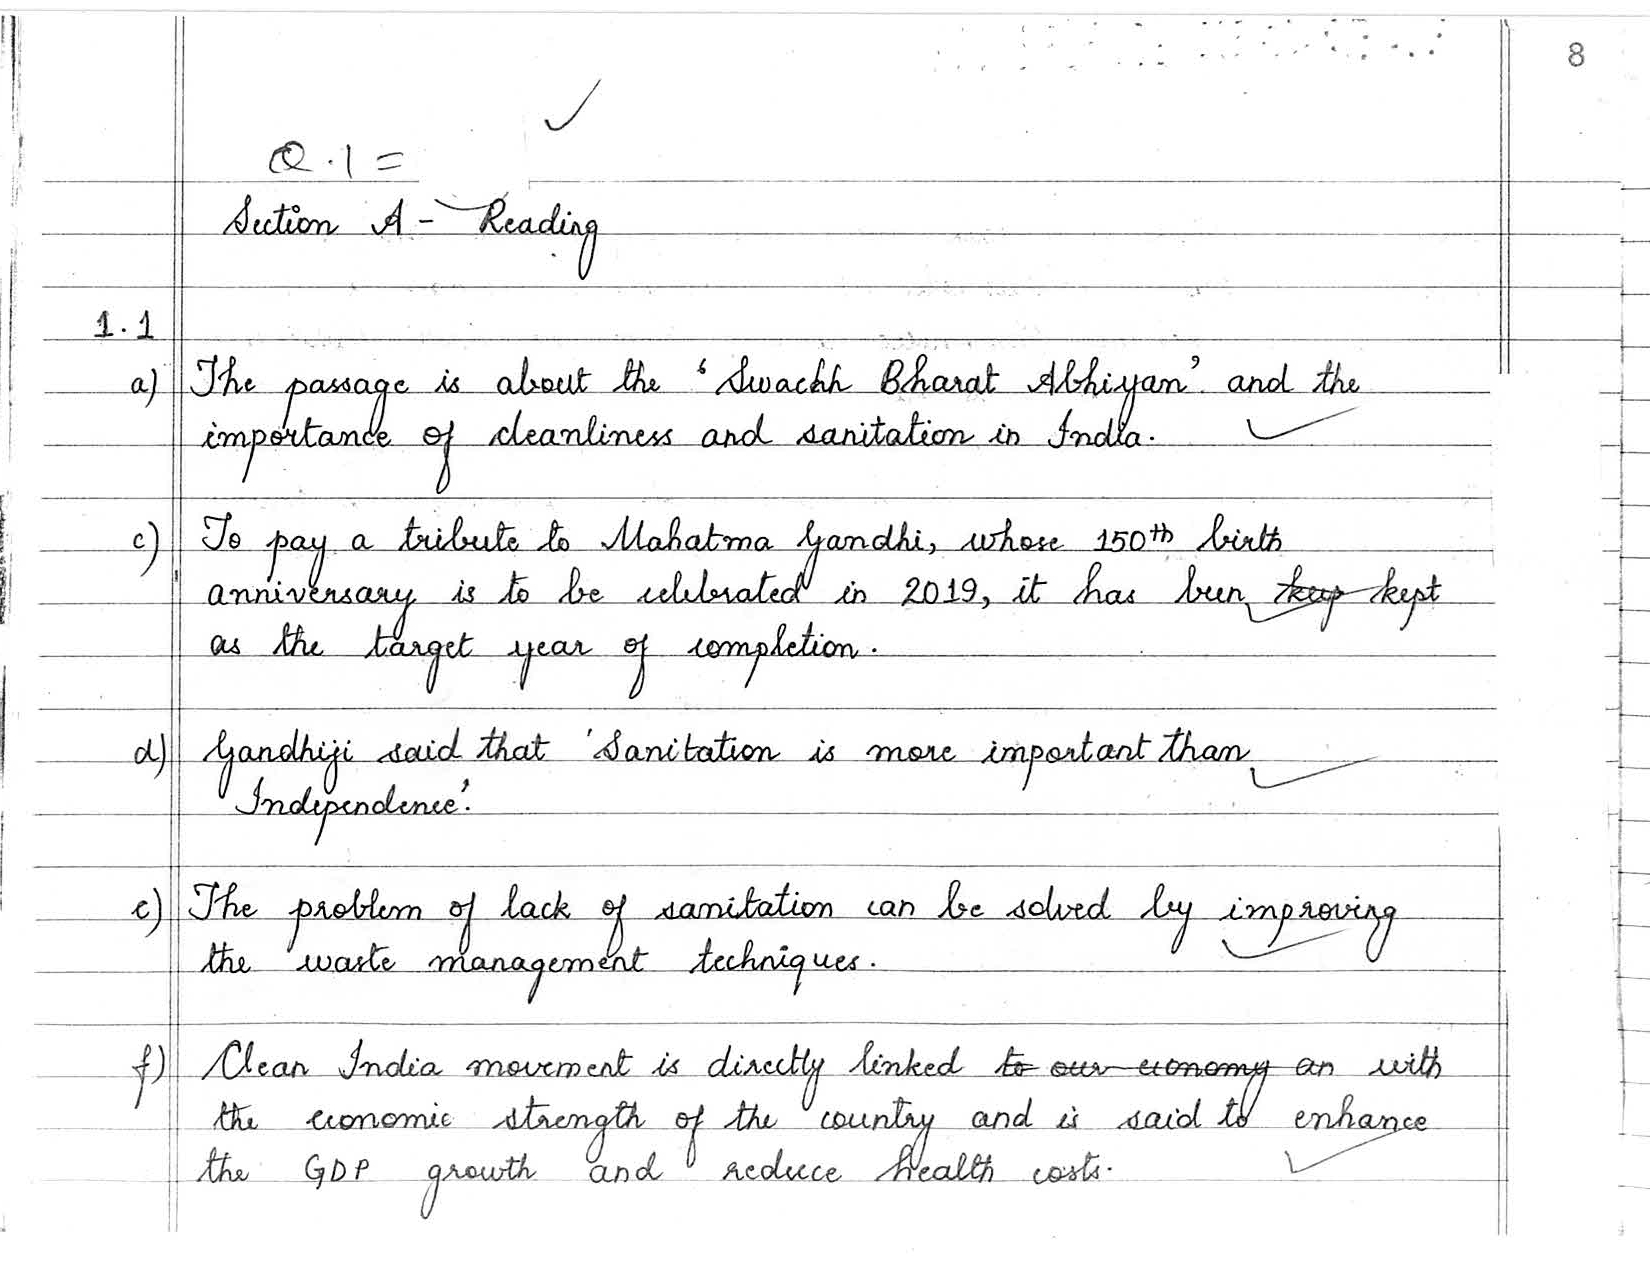 8
Q.1 =
Section A - Reading
1.1
a) The passage is about the 'Swachh Bharat Abhiyan' and the
importance of cleanliness and sanitation in India.
c) To pay a tribute to Mahatma Gandhi, whose 150th birth
anniversary is to be celebrated in 2019, it has been keep kept
as the target year of completion.
d) Gandhiji said that 'Sanitation is more important than
Independence'.
e) The problem of lack of sanitation can be solved by improving
the waste management techniques.
f) Clean India movement is directly linked to our economy an with
the economic strength of the country and is said to enhance
the GDP growth and reduce health costs.